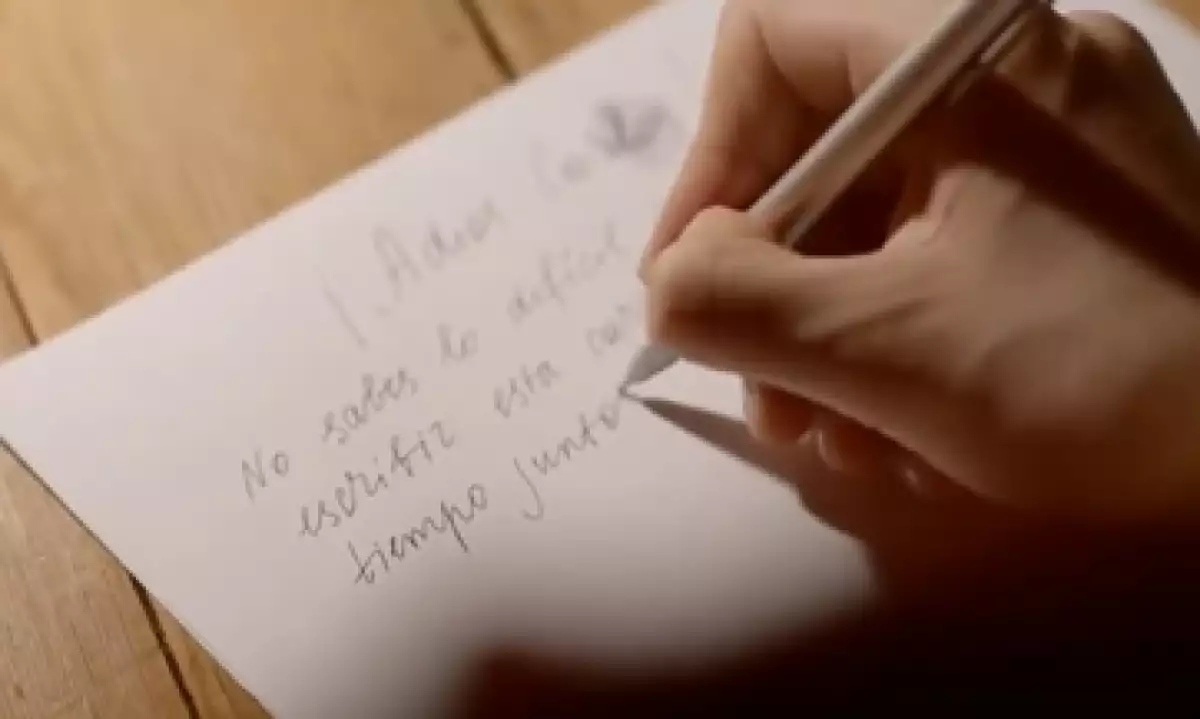 ¡Adios
No sabes lo dificil
escribir esta
tiempo junto